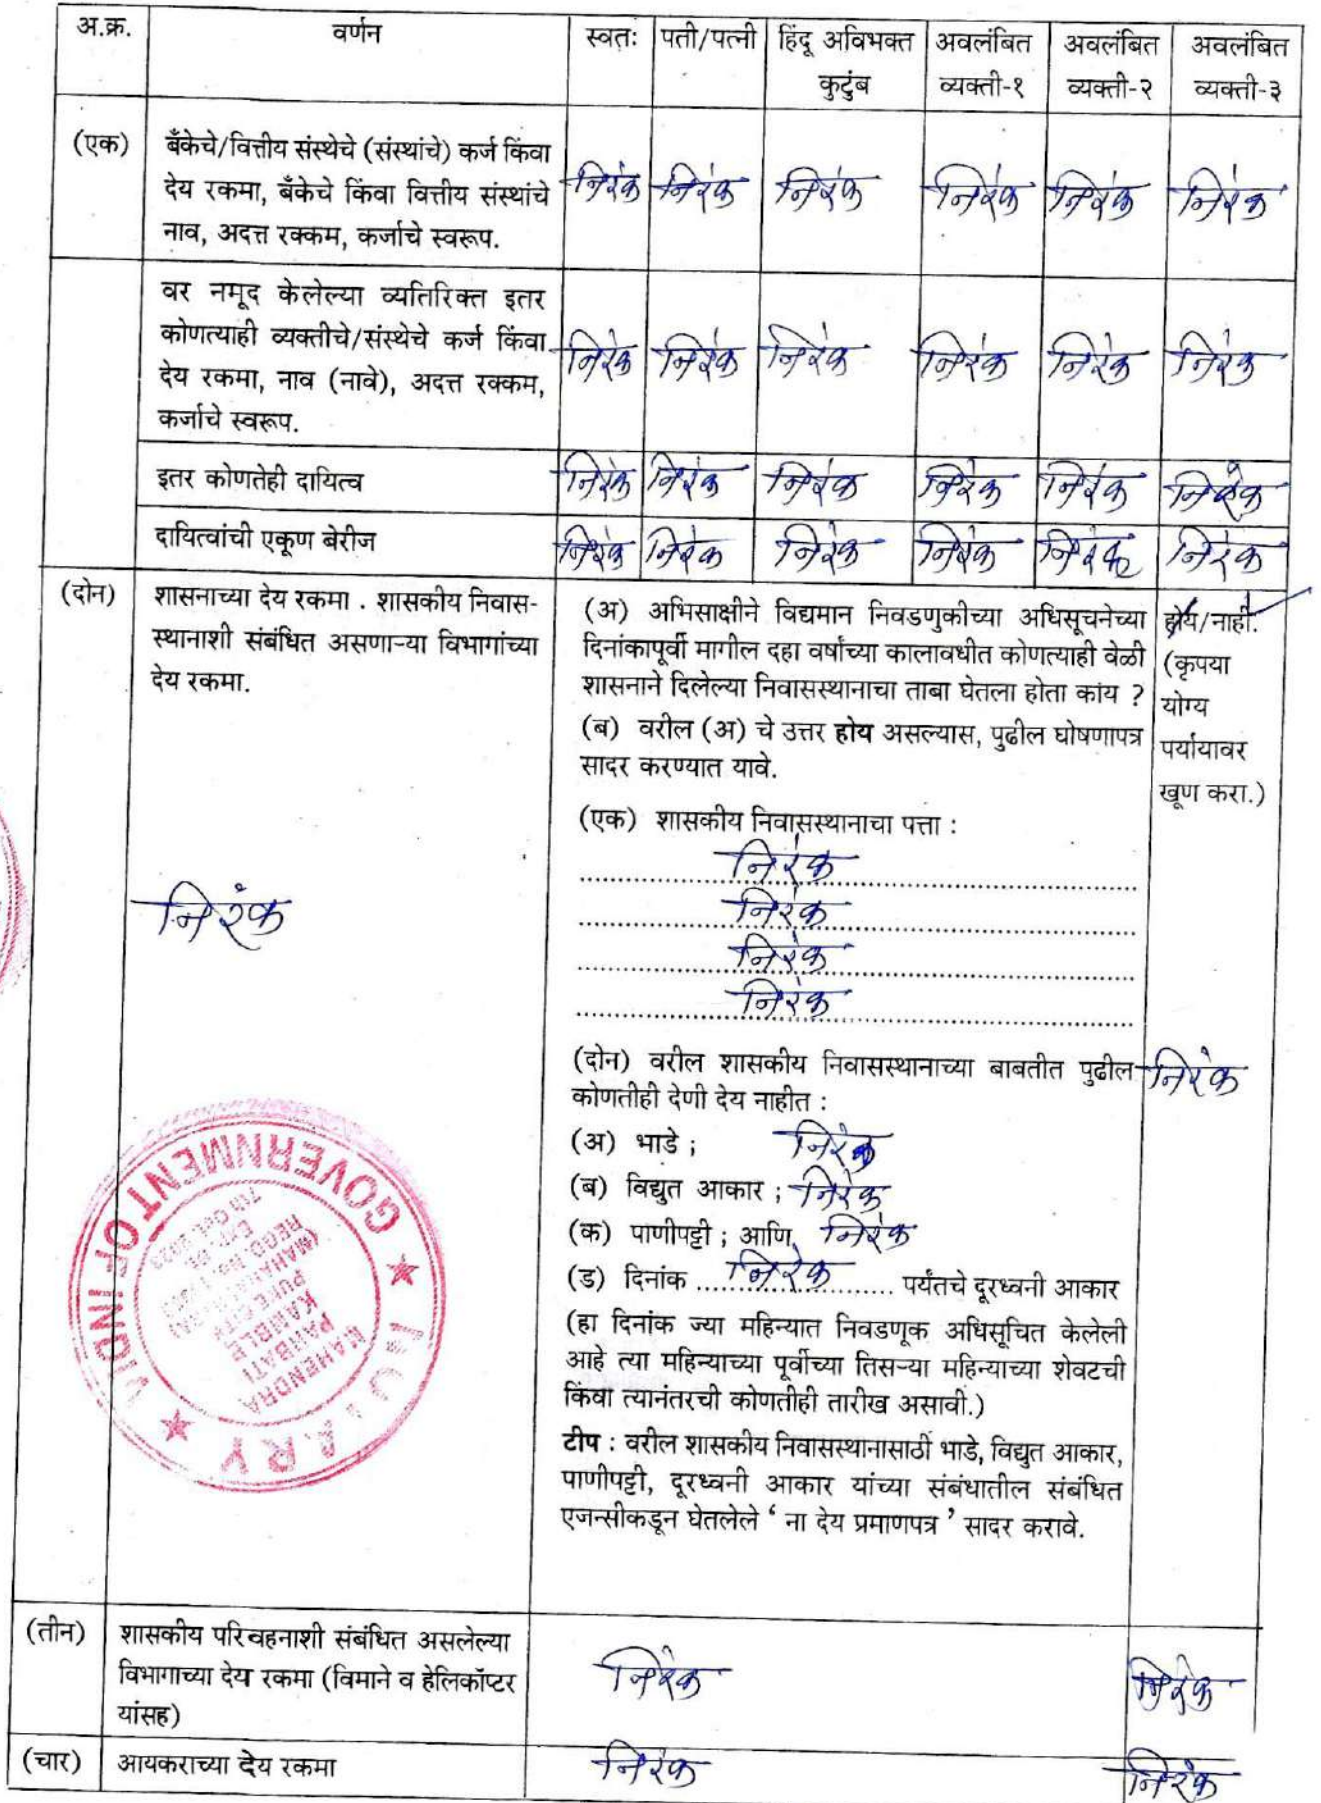 अ.क्र. वर्णन स्वतः पती/पत्नी हिंदू अविभक्त कुटुंब अवलंबित व्यक्ती-१ अवलंबित व्यक्ती-२ अवलंबित व्यक्ती-३
(एक) बँकेचे/वित्तीय संस्थेचे (संस्थांचे) कर्ज किंवा
देय रकमा, बँकेचे किंवा वित्तीय संस्थांचे
नाव, अदत्त रक्कम, कर्जाचे स्वरूप.
निरंक निरंक निरंक निरंक निरंक निरंक
वर नमूद केलेल्या व्यतिरिक्त इतर
कोणत्याही व्यक्तीचे/संस्थेचे कर्ज किंवा
देय रकमा, नाव (नावे), अदत्त रक्कम,
कर्जाचे स्वरूप.
निरंक निरंक निरंक निरंक निरंक निरंक
इतर कोणतेही दायित्व निरंक निरंक निरंक निरंक निरंक निरंक
दायित्वांची एकूण बेरीज निरंक निरंक निरंक निरंक निरंक निरंक
(दोन) शासनाच्या देय रकमा . शासकीय निवास-
स्थानाशी संबंधित असणाऱ्या विभागांच्या
देय रकमा.
निरंक
(अ) अभिसाक्षीने विद्यमान निवडणुकीच्या अधिसूचनेच्या
दिनांकापूर्वी मागील दहा वर्षांच्या कालावधीत कोणत्याही वेळी
शासनाने दिलेल्या निवासस्थानाचा ताबा घेतला होता कांय ?
(ब) वरील (अ) चे उत्तर होय असल्यास, पुढील घोषणापत्र
सादर करण्यात यावे.
होय/नाही.
(कृपया
योग्य
पर्यायावर
खूण करा.)
(एक) शासकीय निवासस्थानाचा पत्ता :
निरंक
निरंक
निरंक
निरंक
(दोन) वरील शासकीय निवासस्थानाच्या बाबतीत पुढील निरंक
कोणतीही देणी देय नाहीत :
(अ) भाडे ; निरंक
(ब) विद्युत आकार ; निरंक
(क) पाणीपट्टी ; आणि निरंक
(ड) दिनांक ....निरंक.... पर्यंतचे दूरध्वनी आकार
(हा दिनांक ज्या महिन्यात निवडणूक अधिसूचित केलेली
आहे त्या महिन्याच्या पूर्वीच्या तिसऱ्या महिन्याच्या शेवटची
किंवा त्यानंतरची कोणतीही तारीख असावी.)
टीप : वरील शासकीय निवासस्थानासाठी भाडे, विद्युत आकार,
पाणीपट्टी, दूरध्वनी आकार यांच्या संबंधातील संबंधित
एजन्सीकडून घेतलेले ‘ ना देय प्रमाणपत्र ’ सादर करावे.
NOTARY
GOVERNMENT OF INDIA
MAHENDRA
PARBATI
KAMBLE
(तीन) शासकीय परिवहनाशी संबंधित असलेल्या
विभागाच्या देय रकमा (विमाने व हेलिकॉप्टर
यांसह)
निरंक निरंक
(चार) आयकराच्या देय रकमा निरंक निरंक